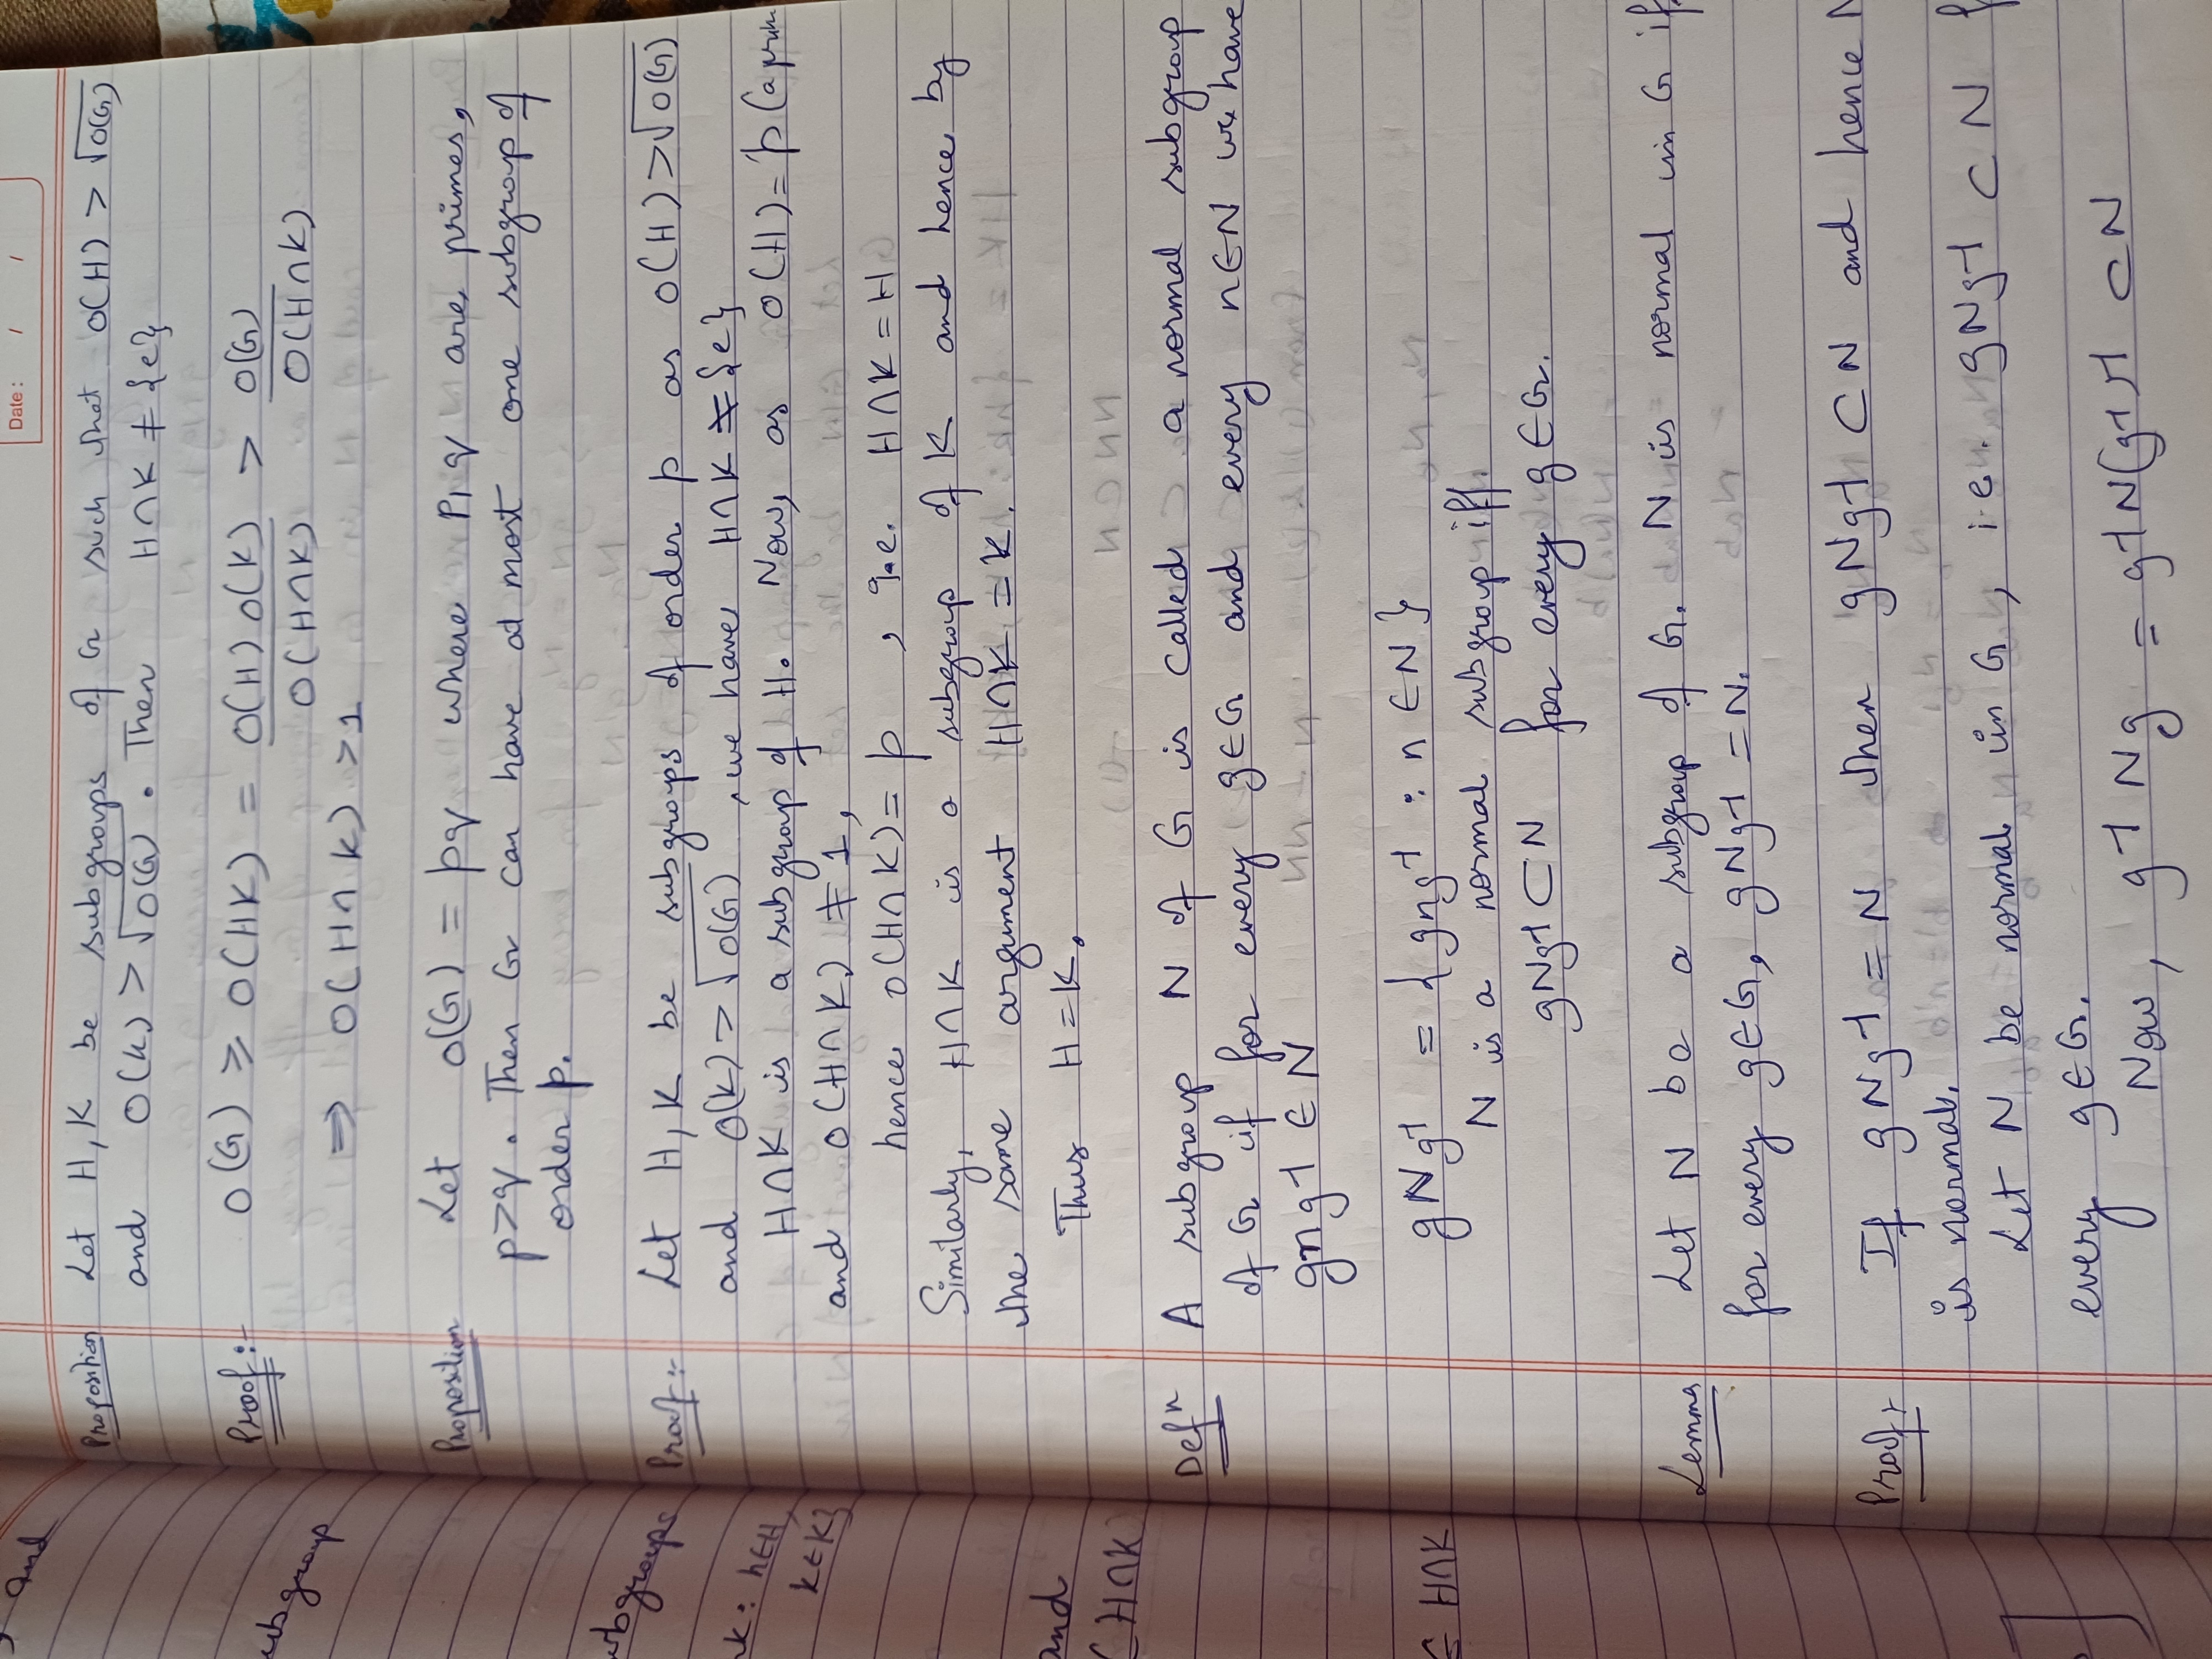 Date: / /
Proposition Let H, K be subgroups of G such that O(H) > √O(G)
and O(K) > √O(G). Then H∩K ≠ {e}
Proof:- O(G) ≥ O(HK) = O(H) O(K) / O(H∩K) > O(G) / O(H∩K)
⇒ O(H∩K) > 1
Proposition Let O(G) = pq where p,q are primes,
p>q. Then G can have at most one subgroup of
order p.
Proof:- Let H, K be subgroups of order p as O(H) > √O(G)
and O(K) > √O(G), we have H∩K ≠ {e}
H∩K is a subgroup of H. Now, as O(H) = p (a prim
and O(H∩K) ≠ 1,
hence O(H∩K) = p , i.e. H∩K = H
Similarly, H∩K is a subgroup of K and hence by
the same argument H∩K = K.
Thus H=K.
Defn A subgroup N of G is called a normal subgroup
of G if for every g∈G and every n∈N we have
gng-1 ∈ N
gNg-1 = {gng-1 : n ∈ N}
N is a normal subgroup iff
gNg-1 ⊂ N for every g ∈ G.
Lemma Let N be a subgroup of G. N is normal in G if
for every g∈G, gNg-1 = N.
Proof:- If gNg-1 = N then gNg-1 ⊂ N and hence N
is normal.
Let N be normal in G, i.e. gNg-1 ⊂ N f
every g∈G.
Now, g-1Ng = g-1N(g-1)-1 ⊂ N
and
subgroup
subgroups
k: h∈H,
k∈K}
and
H∩K
≤ H∩K